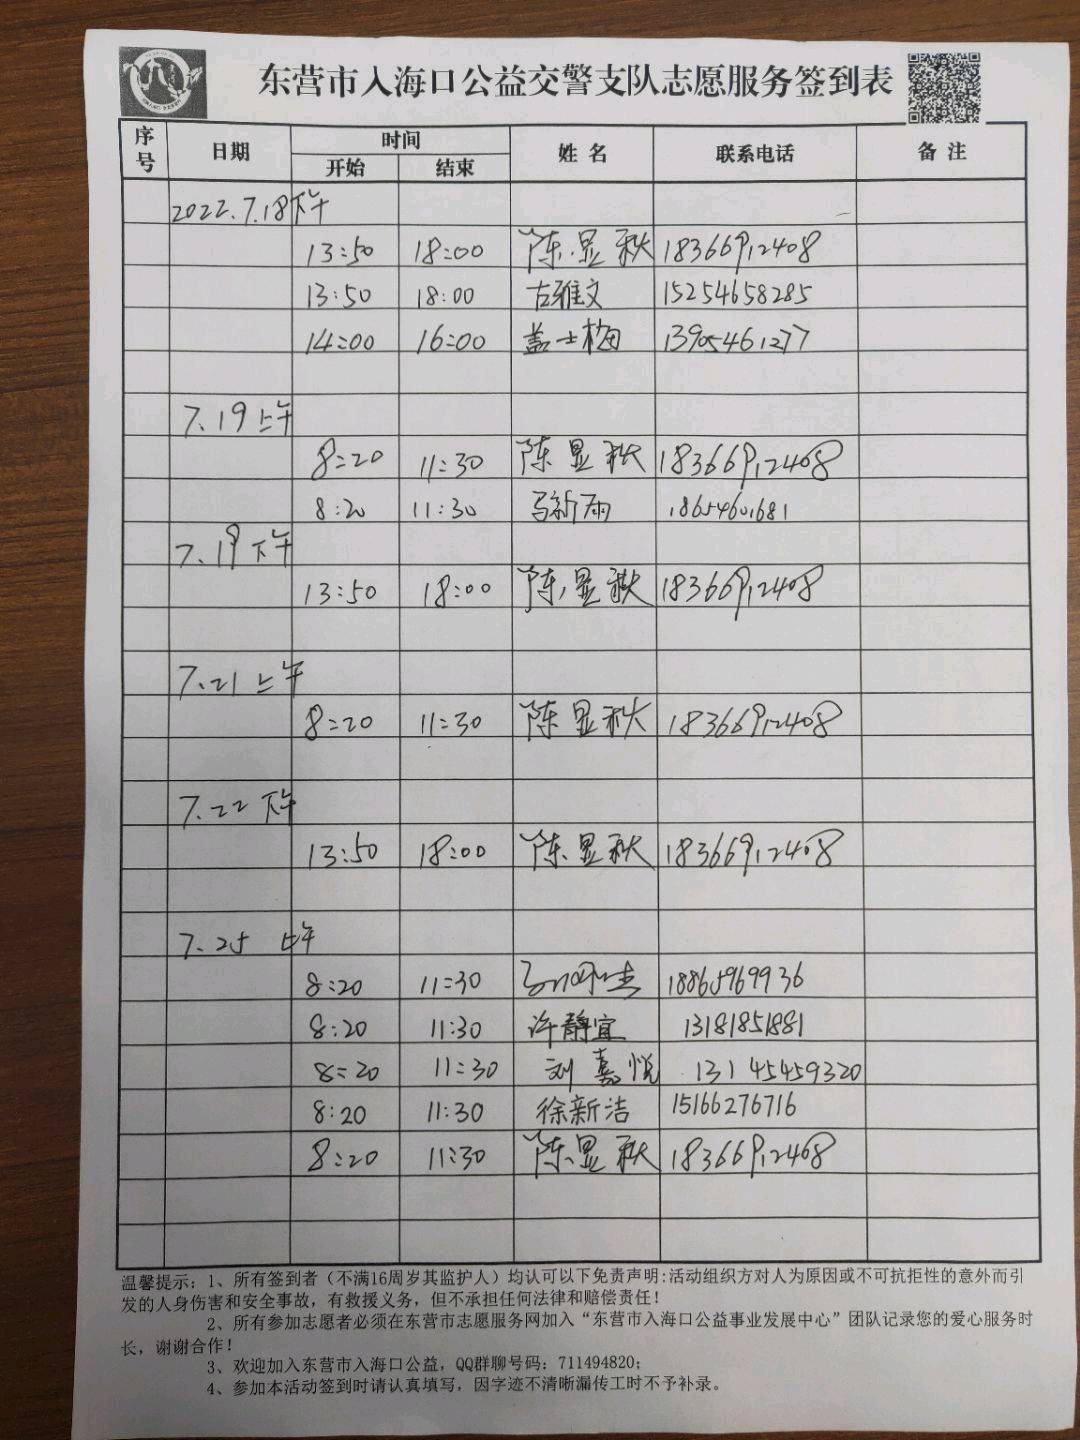 东营市入海口公益交警支队志愿服务签到表
序号 日期 时间 姓名 联系电话 备注
开始 结束
2022.7.18下午
13:50 18:00 陈显秋 18366912408
13:50 18:00 古雅文 15254658285
14:00 16:00 盖士梅 13905461277
7.19上午
8:20 11:30 陈显秋 18366912408
8:20 11:30 马新雨 18654601681
7.19下午
13:50 18:00 陈显秋 18366912408
7.21上午
8:20 11:30 陈显秋 18366912408
7.22下午
13:50 18:00 陈显秋 18366912408
7.25 上午
8:20 11:30 18865969936
8:20 11:30 许静宜 13181851881
8:20 11:30 刘嘉悦 13145459320
8:20 11:30 徐新洁 15166276716
8:20 11:30 陈显秋 18366912408
温馨提示：1、所有签到者（不满16周岁其监护人）均认可以下免责声明:活动组织方对人为原因或不可抗拒性的意外而引
发的人身伤害和安全事故，有救援义务，但不承担任何法律和赔偿责任！
2、所有参加志愿者必须在东营市志愿服务网加入“东营市入海口公益事业发展中心”团队记录您的爱心服务时
长，谢谢合作！
3、欢迎加入东营市入海口公益，QQ群聊号码：711494820；
4、参加本活动签到时请认真填写，因字迹不清晰漏传工时不予补录。